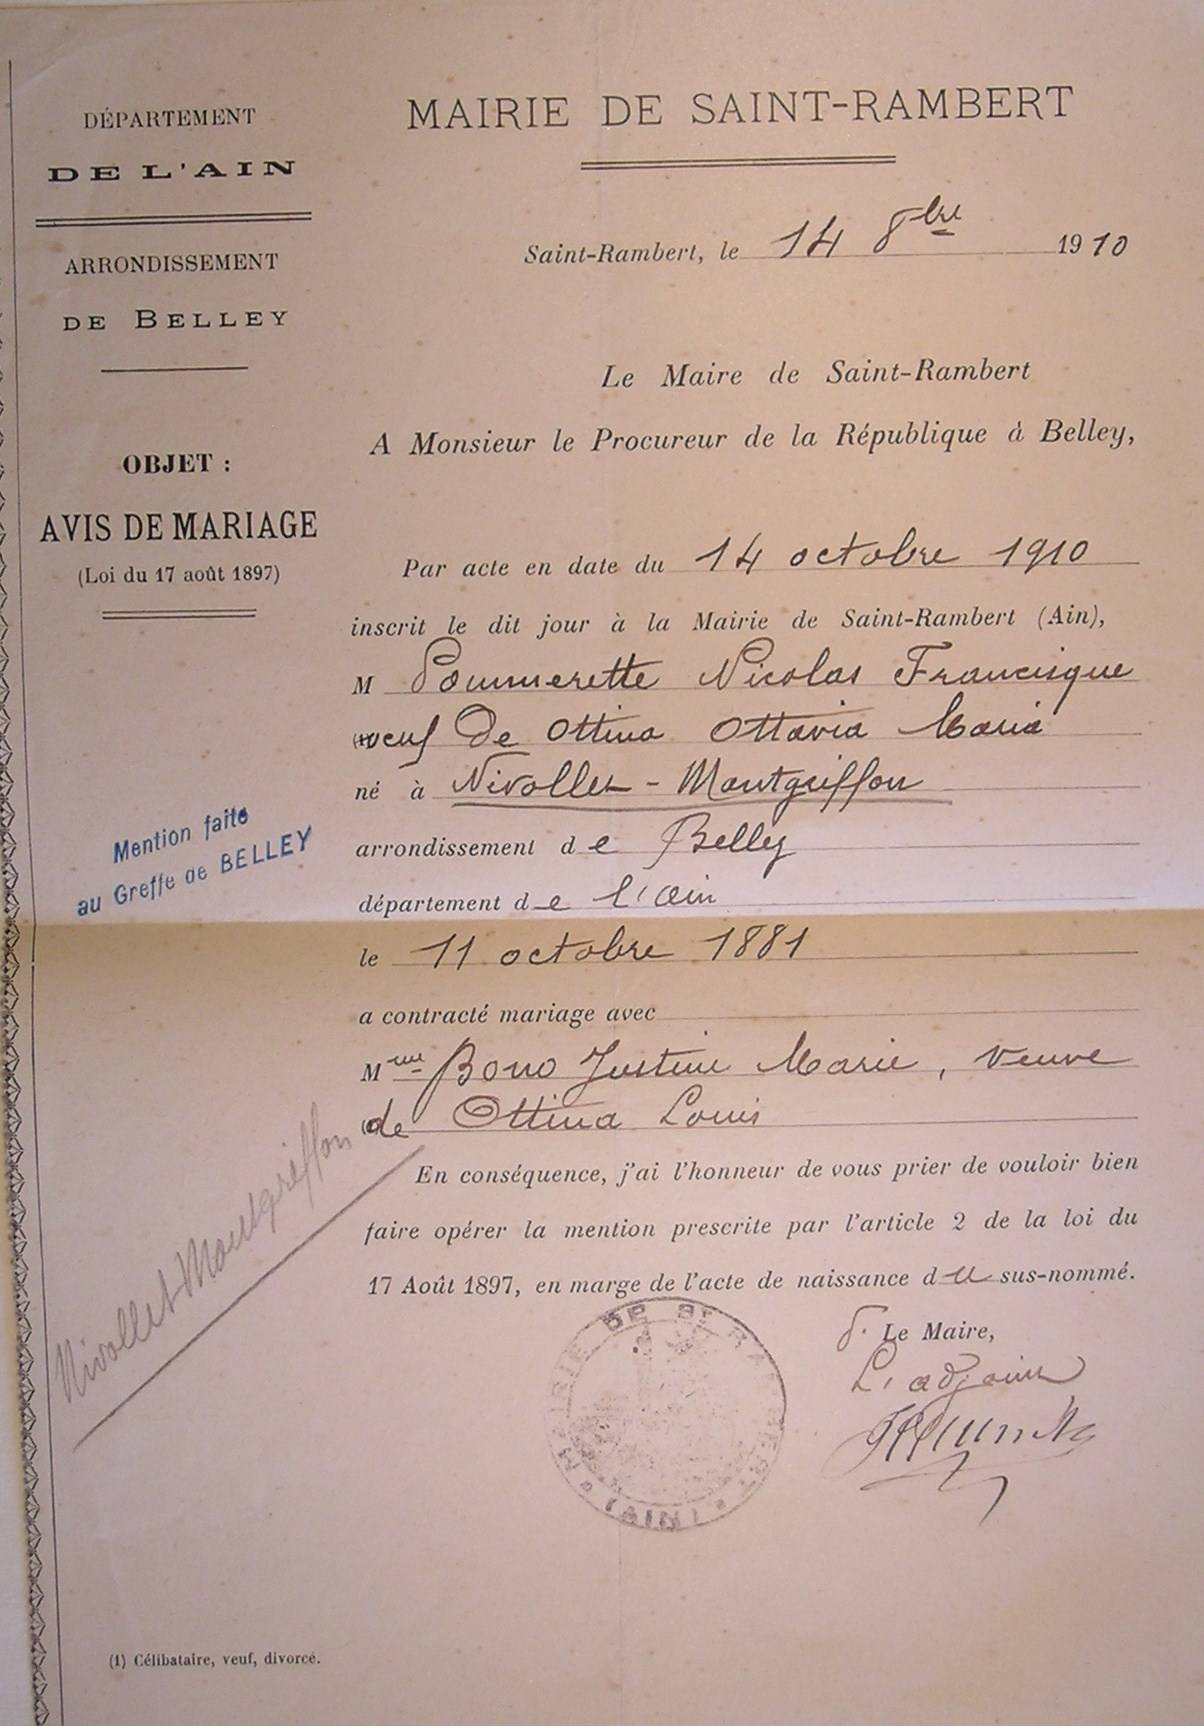 DÉPARTEMENT
DE L'AIN
ARRONDISSEMENT
DE BELLEY
OBJET :
AVIS DE MARIAGE
(Loi du 17 août 1897)
Mention faite
au Greffe de BELLEY
Nivollet-Montgriffon
(1) Célibataire, veuf, divorcé.
MAIRIE DE SAINT-RAMBERT
Saint-Rambert, le 14 8bre 1910
Le Maire de Saint-Rambert
A Monsieur le Procureur de la République à Belley,
Par acte en date du 14 octobre 1910
inscrit le dit jour à la Mairie de Saint-Rambert (Ain),
M Pommerette Nicolas Francisque
veuf de Ottina Ottavia Maria
né à Nivollet-Montgriffon
arrondissement de Belley
département de l'ain
le 11 octobre 1881
a contracté mariage avec
Mme Bono Justine Marie, veuve
de Ottina Louis
En conséquence, j'ai l'honneur de vous prier de vouloir bien
faire opérer la mention prescrite par l'article 2 de la loi du
17 Août 1897, en marge de l'acte de naissance du sus-nommé.
p. Le Maire,
L'adjoint
MAIRIE DE St RAMBERT
(AIN)